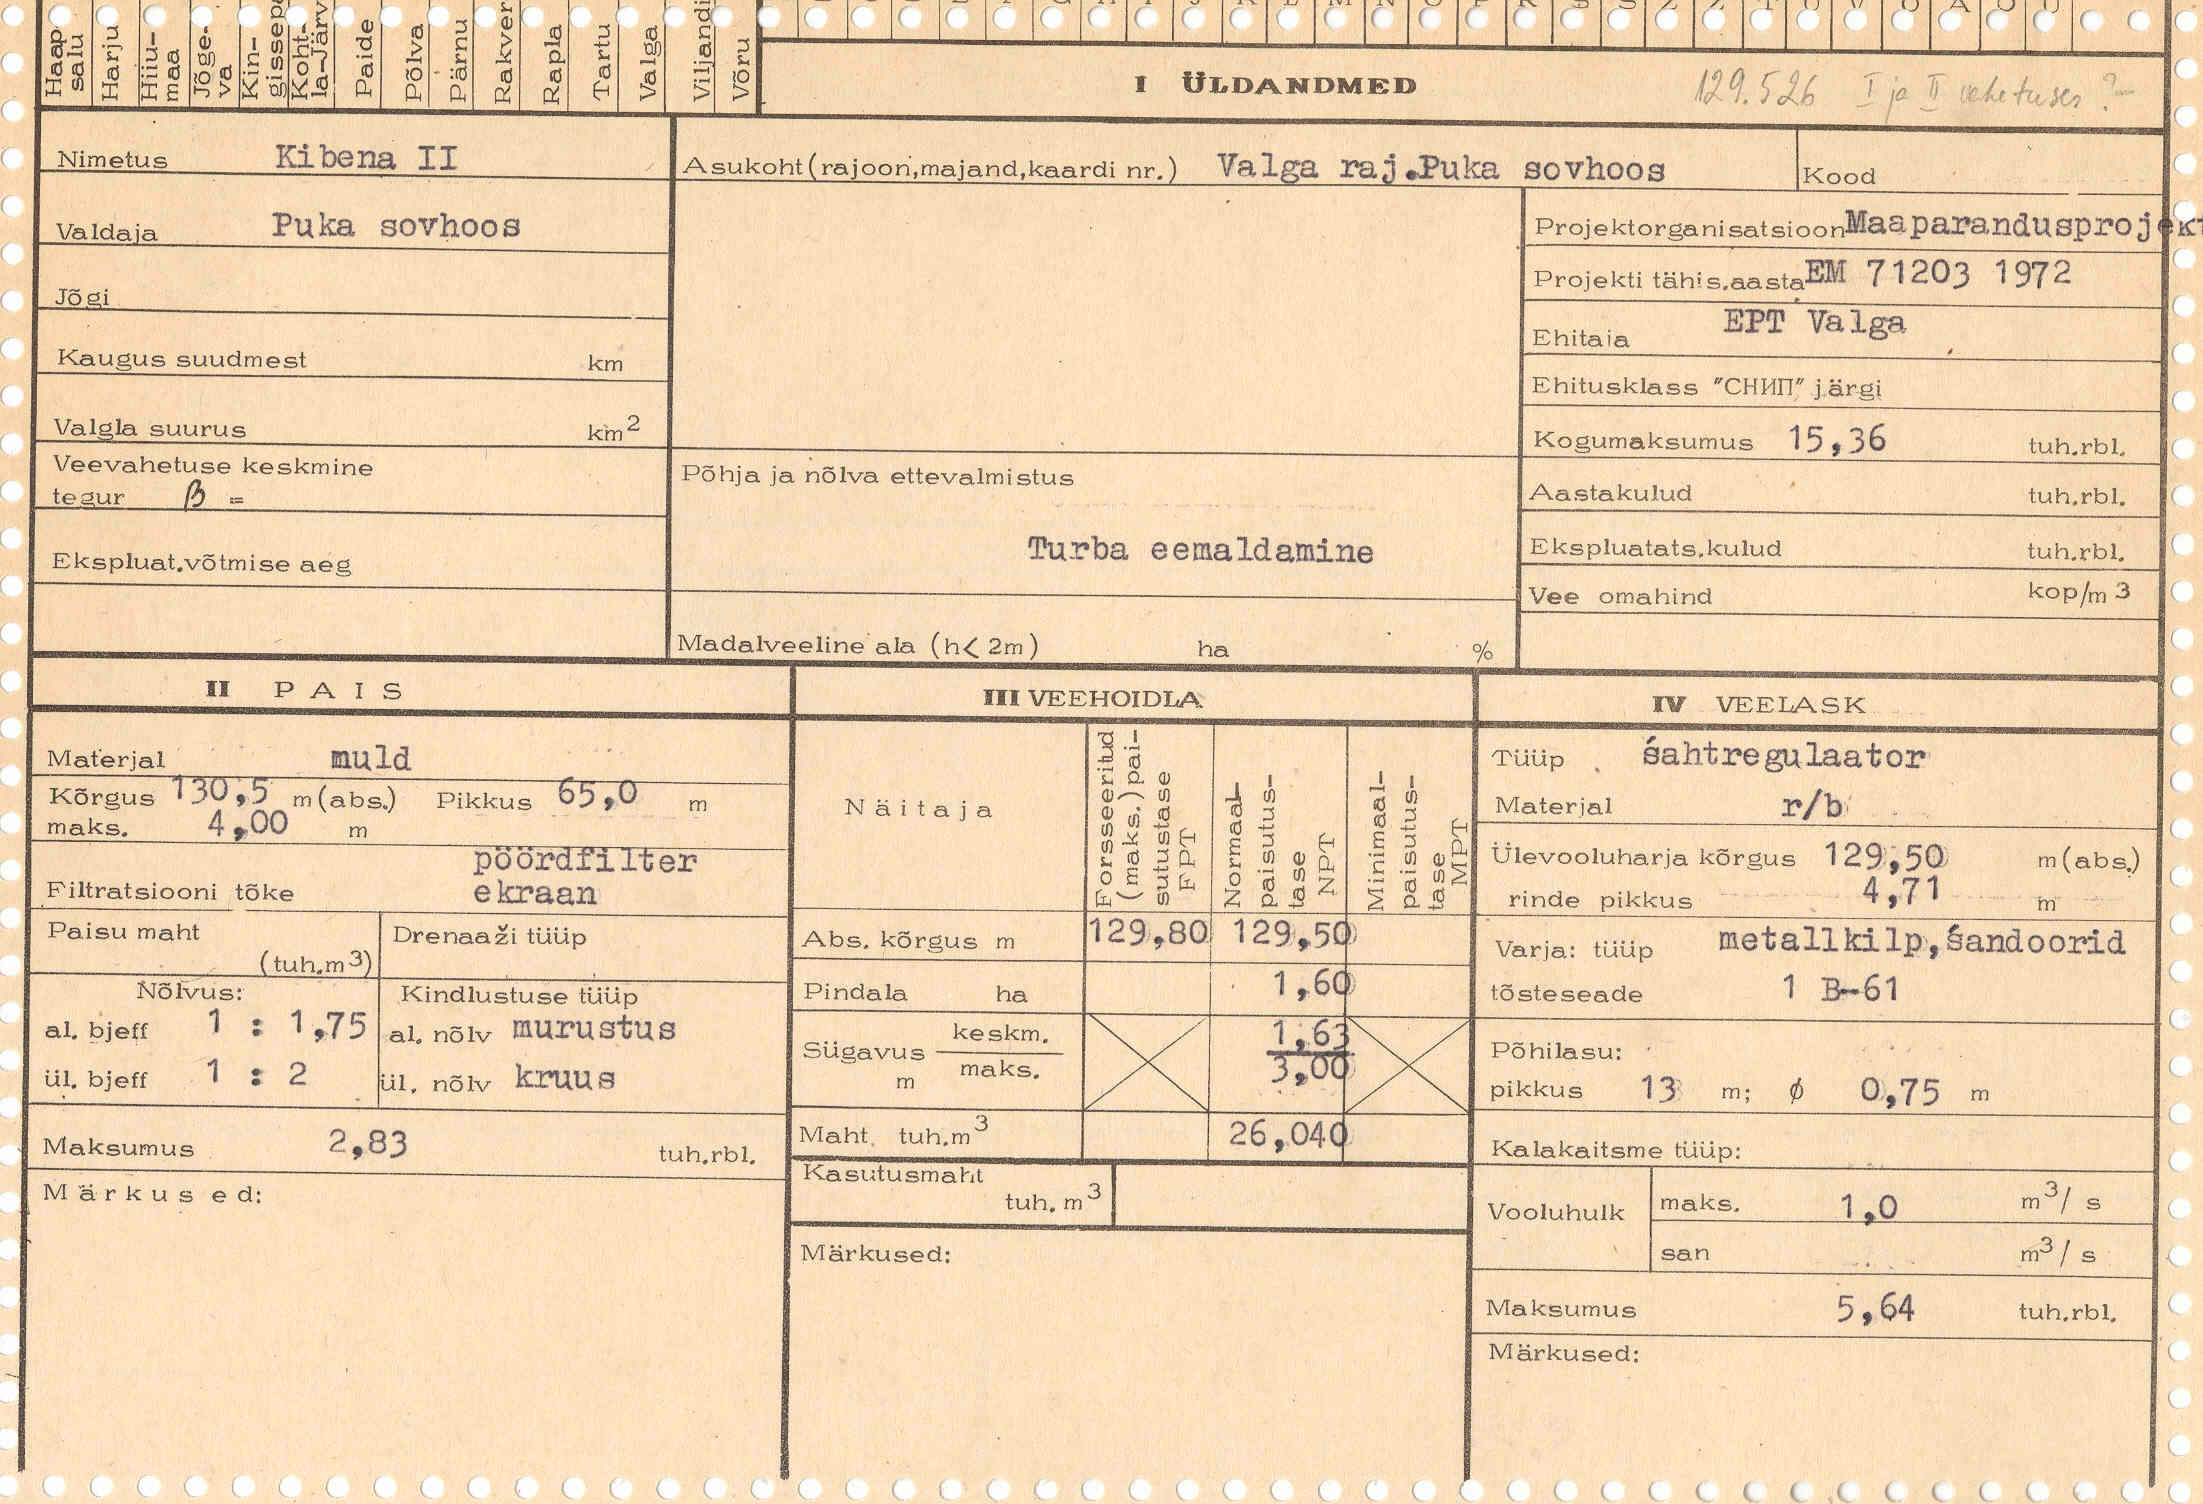 Haap salu
Harju
Hiiu- maa
Jõge- va
Kin- gissepa
Koht- la-Järv
Paide
Põlva
Pärnu
Rakver
Rapla
Tartu
Valga
Viljandi
Võru
I ÜLDANDMED
129.526 I ja II vahetuses ?
Nimetus Kibena II
Asukoht(rajoon,majand,kaardi nr.) Valga raj.Puka sovhoos
Kood
Valdaja Puka sovhoos
Projektorganisatsioon Maaparandusprojekt
Jõgi
Projekti tähis,aasta EM 71203 1972
Ehitaja EPT Valga
Kaugus suudmest km
Ehitusklass "СНИП" järgi
Valgla suurus km2
Kogumaksumus 15,36 tuh.rbl.
Veevahetuse keskmine
tegur β =
Põhja ja nõlva ettevalmistus
Turba eemaldamine
Aastakulud tuh.rbl.
Ekspluat.võtmise aeg
Ekspluatats.kulud tuh.rbl.
Vee omahind kop/m3
Madalveeline ala (h< 2m) ha %
II PAIS
Materjal muld
Kõrgus 130,5 m(abs.) Pikkus 65,0 m
maks. 4,00 m
pöördfilter
Filtratsiooni tõke ekraan
Paisu maht
(tuh.m3)
Drenaaži tüüp
Nõlvus:
Kindlustuse tüüp
al. bjeff 1 : 1,75 al. nõlv murustus
ül. bjeff 1 : 2 ül. nõlv kruus
Maksumus 2,83 tuh.rbl.
Märkused:
III VEEHOIDLA
Näitaja
Forsseeritud (maks.)pai- sutustase FPT
Normaal- paisutus- tase NPT
Minimaal- paisutus- tase MPT
Abs. kõrgus m 129,80 129,50
Pindala ha 1,60
Sügavus m keskm. 1,63
maks. 3,00
Maht tuh.m3 26,040
Kasutusmaht
tuh. m3
Märkused:
IV VEELASK
Tüüp šahtregulaator
Materjal r/b
Ülevooluharja kõrgus 129,50 m(abs.)
rinde pikkus 4,71 m
Varja: tüüp metallkilp,šandoorid
tõsteseade 1 B-61
Põhilasu:
pikkus 13 m; ϕ 0,75 m
Kalakaitsme tüüp:
Vooluhulk maks. 1,0 m3/ s
san m3/ s
Maksumus 5,64 tuh.rbl.
Märkused: